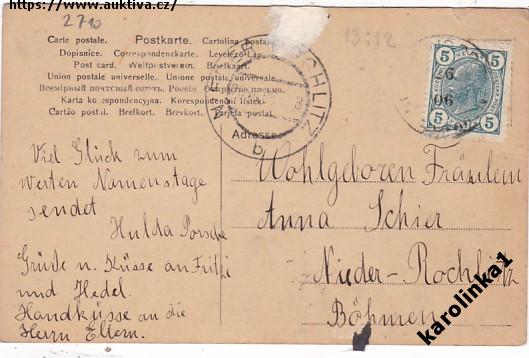 https://www.auktiva.cz/
2710
13:12
Carte postale. Postkarte. Cartolina postale.
Dopisnice. Correspondenzkarte. Levelező-Lap.
Post card. Weltpostverein. Briefkort.
Union postale universelle. Unione postale universale.
Всемірный почтовый союзъ. Россія Открытое письмо.
Karta korespondencyjna. Korespondenční lístek.
Cartão postal. Brefkort. Brevkort. Tarjeta postal.
Adresse
ROCHLITZ
b
5 5
5 5
6.
06
Viel Glück zum
werten Namenstage
sendet
Hulda Porsche
Grüße u. Küsse an Fritzi
und Hedel.
Handküsse an die
Herrn Eltern.
Wohlgeboren Fräulein
Anna Schier
Nieder-Rochlitz
Böhmen
karolinka1